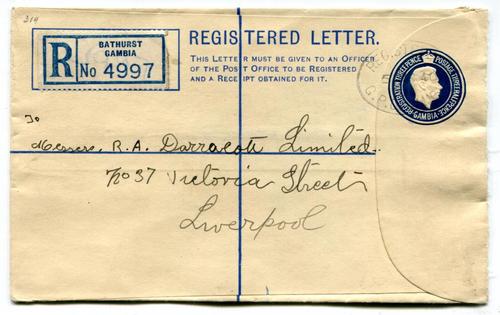 314
BATHURST
GAMBIA
R No 4997
REGISTERED LETTER.
THIS LETTER MUST BE GIVEN TO AN OFFICER
OF THE POST OFFICE TO BE REGISTERED
AND A RECEIPT OBTAINED FOR IT.
REGISTRATION THREE PENCE POSTAGE THREE HALFPENCE
GAMBIA
To
Messers. R. A. Darracott Limited.
No 37 Victoria Street
Liverpool